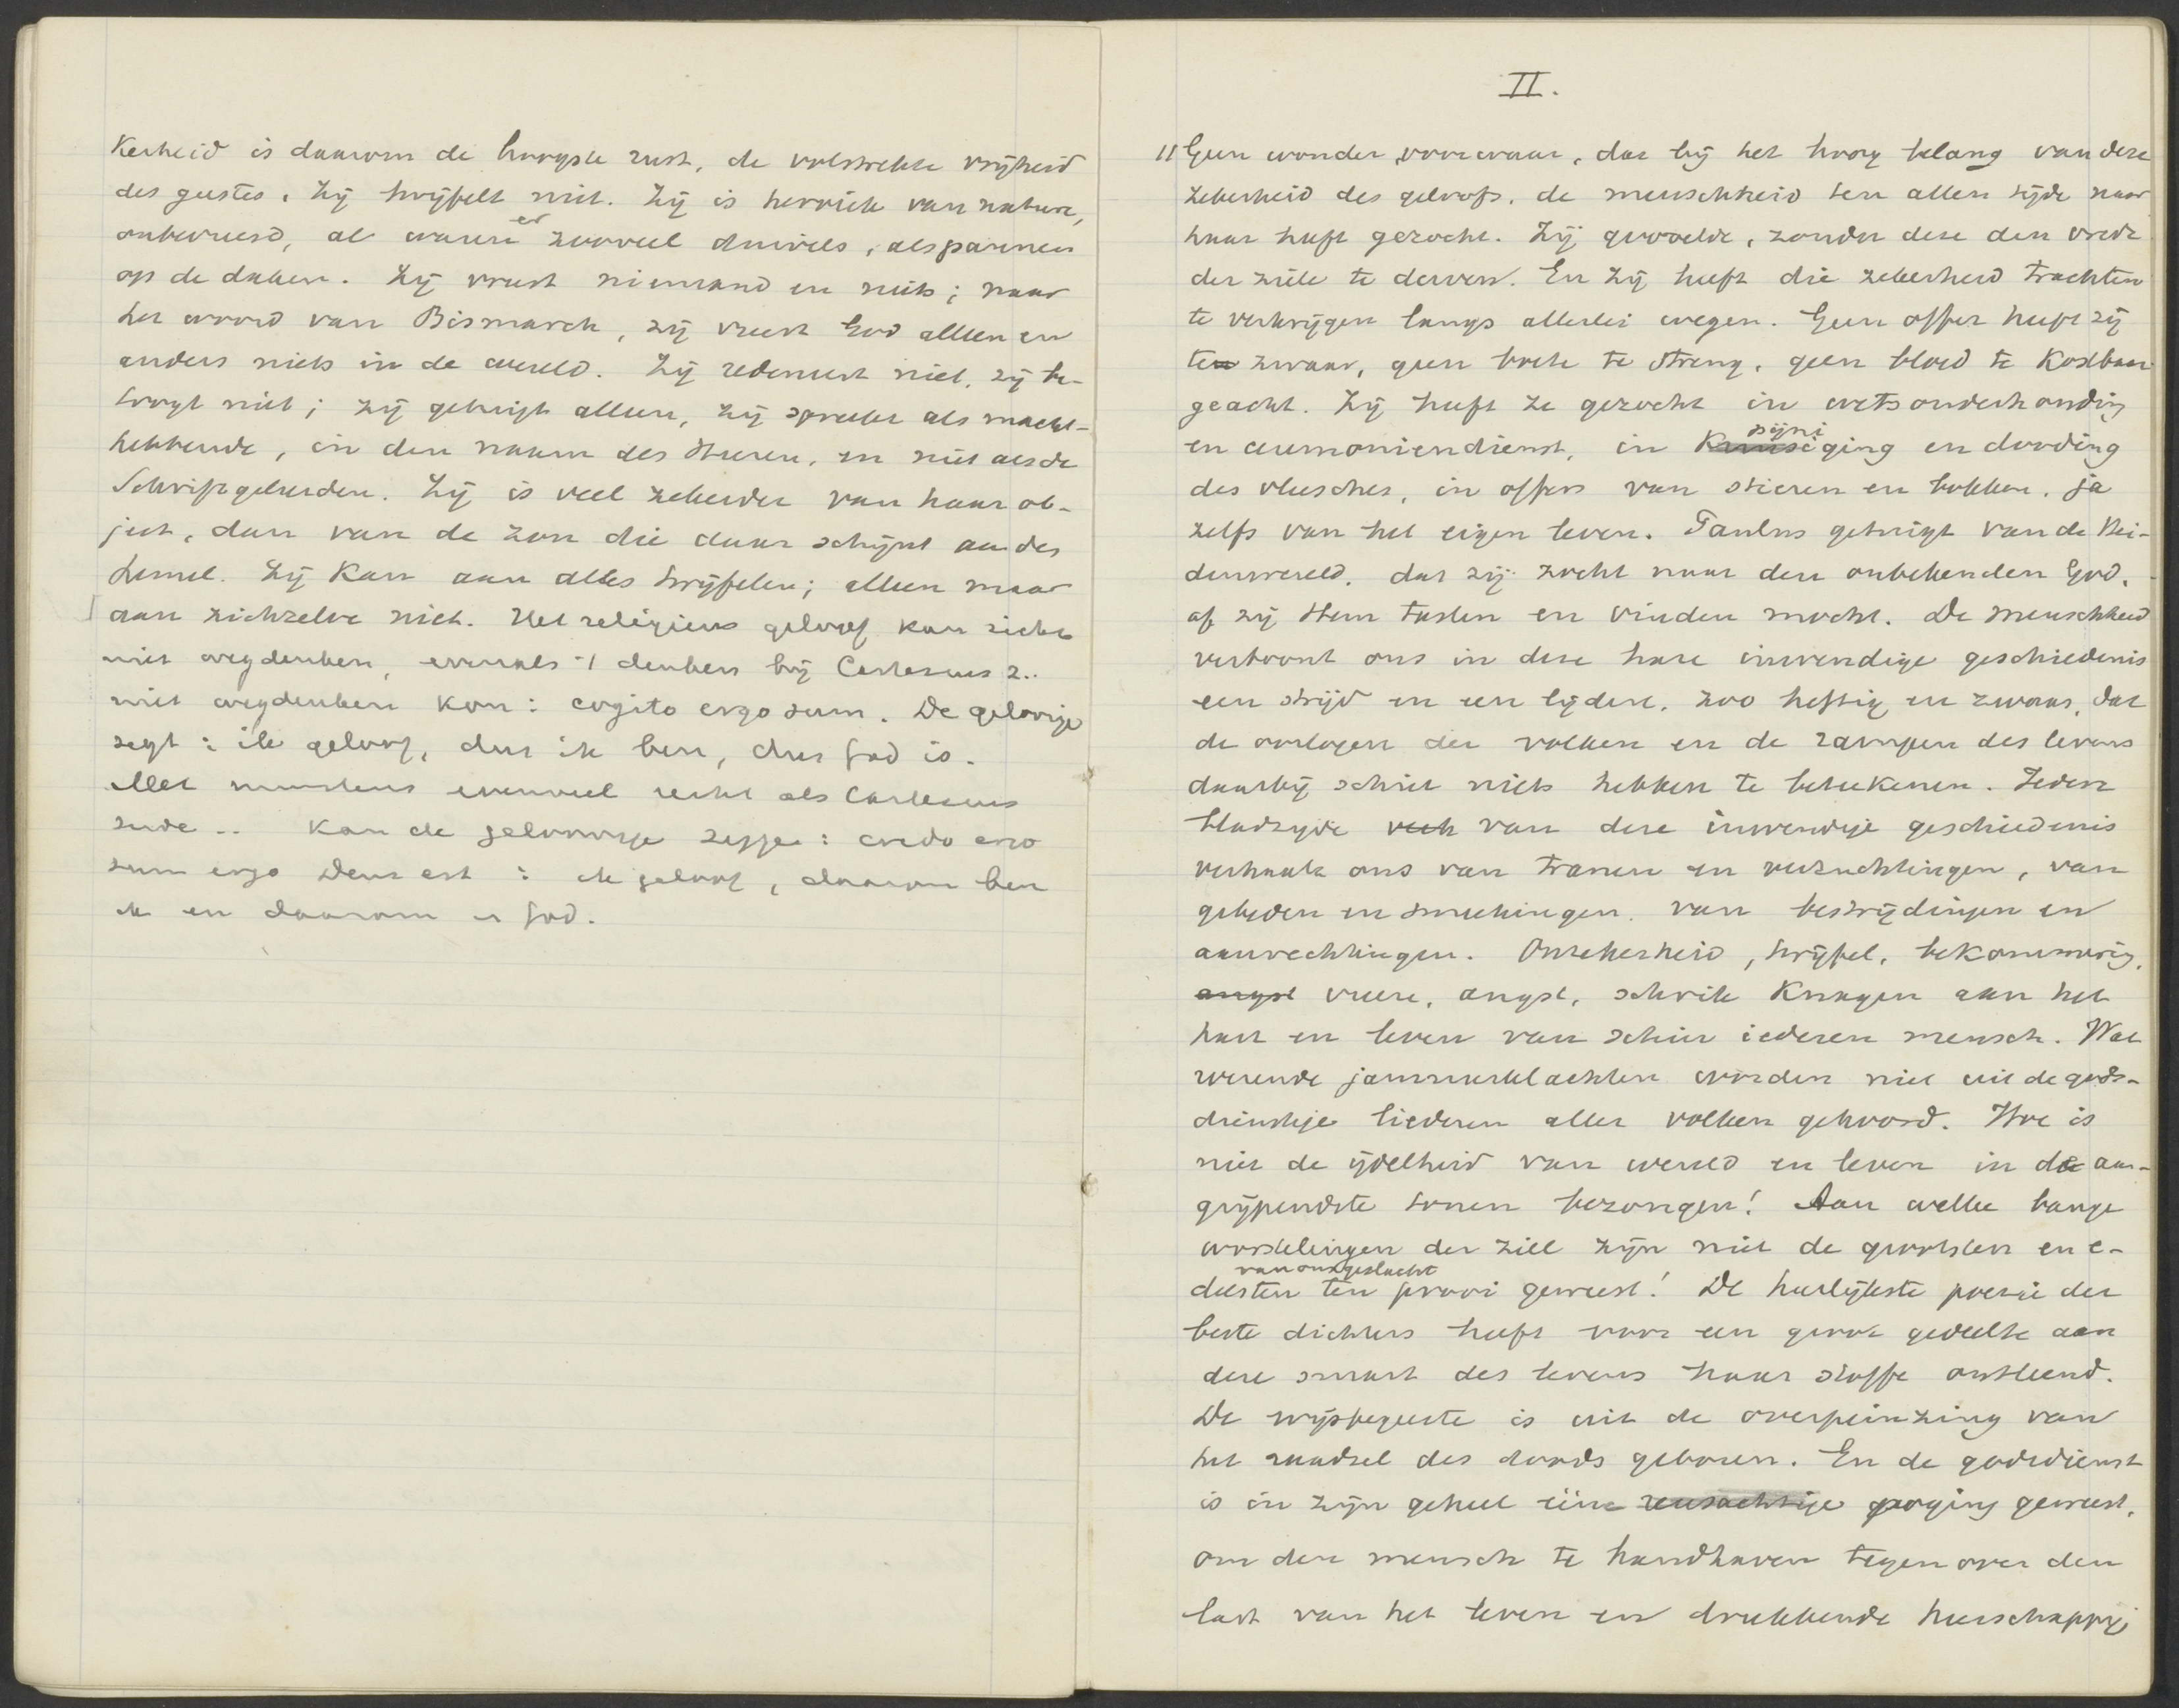 kerheid is daarom de hoogste rust, de volstrekte vrijheid
des geestes. Zij twijfelt niet. Zij is heroïek van nature,
onbevreesd, al waren er zooveel duivels, als pannen
op de daken. Zij vreest niemand en niets; naar
het woord van Bismarck, zij vreest God alleen en
anders niets in de wereld. Zij redeneert niet, zij be-
toogt niet; zij getuigt alleen, zij spreekt als macht-
hebbende, in den naam des Heeren, en niet als de
Schriftgeleerden. Zij is veel zekerder van haar ob-
ject, dan van de zon die daar schijnt aan den
hemel. Zij kan aan alles twijfelen; alleen maar
aan zichzelve niet. Het religieus geloof kan zich
niet wegdenken, evenals 't denken bij Cartesius z..
niet wegdenken kon: cogito ergo sum. De geloovige
zegt: ik geloof, dus ik ben, dus God is.
Met minstens evenveel recht als Cartesius
zeide .. kan de geloovige zeggen: credo ergo
sum ergo Deus est: ik geloof, daarom ben
ik en daarom is God.
II.
11 Geen wonder voorwaar, dat bij het hoog belang van deze
zekerheid des geloofs, de menschheid ten allen tijde naar
haar heeft gezocht. Zij gevoelde, zonder deze den vrede
der ziele te derven. En zij heeft die zekerheid trachten
te verkrijgen langs allerlei wegen. Geen offer heeft zij
te zwaar, geen boete te streng, geen bloed te kostbaar
geacht. Zij heeft ze gezocht in wetsonderhouding
en ceremoniendienst, in pijniging en dooding
des vleesches, in offers van stieren en bokken, ja
zelfs van het eigen leven. Paulus getuigt van de Hei-
denwereld, dat zij zocht naar den onbekenden God,
of zij Hem tasten en vinden mocht. De menschheid
vertoont ons in deze hare inwendige geschiedenis
een strijd en een lijden, zoo heftig en zwaar, dat
de oorlogen der volken en de rampen des levens
daarbij schier niets hebben te beteekenen. Iedere
bladzijde van deze inwendige geschiedenis
verhaalt ons van tranen en verzuchtingen, van
gebeden en smeekingen, van bestrijdingen en
aanvechtingen. Onzekerheid, twijfel, bekommering,
angst vreeze, angst, schrik knagen aan het
hart en leven van schier iederen mensch. Wat
weenende jammerklachten worden niet uit de gods-
dienstige liederen aller volken gehoord. Hoe is
niet de ijdelheid van wereld en leven in de aan-
grijpendste tonen bezongen! Aan welke bange
worstelingen der ziel zijn niet de grootsten en e-
delsten van ons geslacht ten prooi geweest! De heerlijkste poezie der
beste dichters heeft voor een groot gedeelte aan
deze smart des levens haar stoffe ontleend.
De wijsbegeerte is uit de overpeinzing van
het raadsel des doods geboren. En de godsdienst
is in zijn geheel eene reusachtige poging geweest,
om den mensch te handhaven tegenover den
last van het leven en drukkende heerschappij